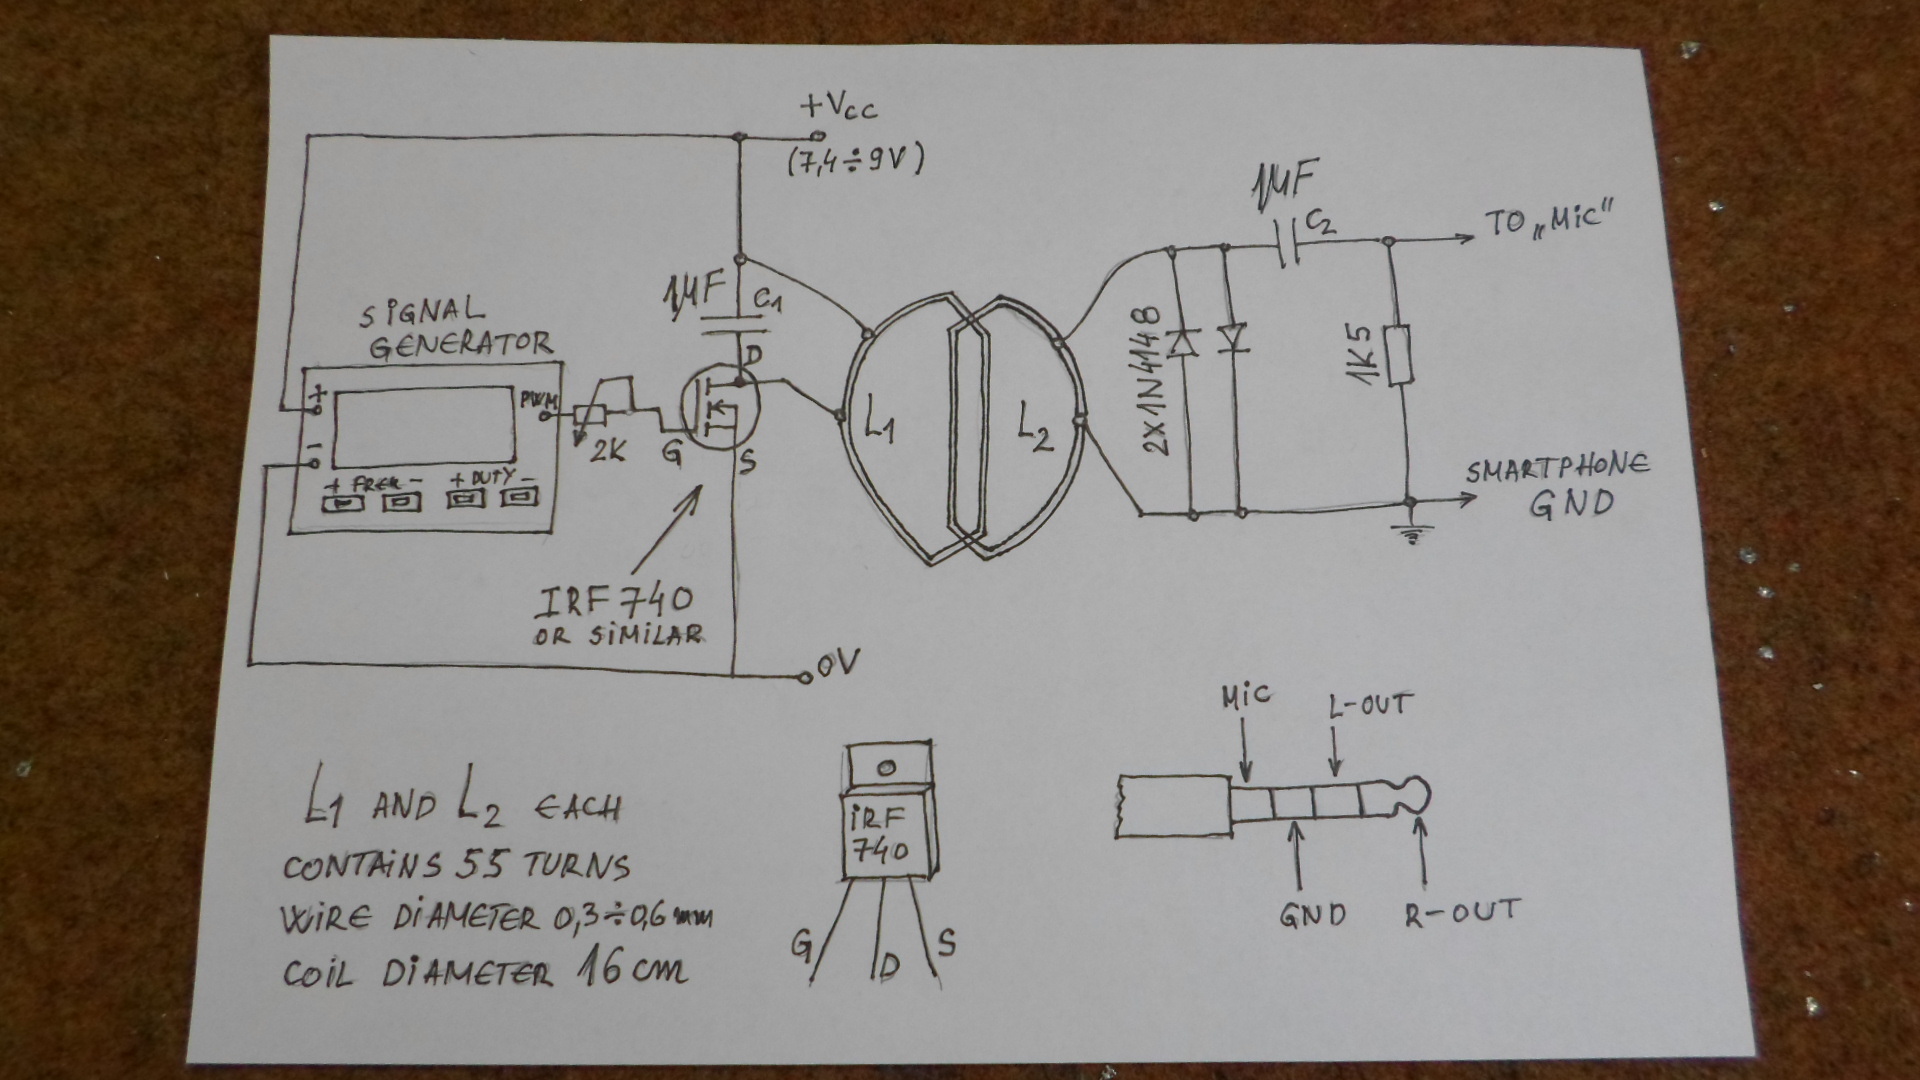 +Vcc
(7,4÷9V)
1µF
C2
TO „MiC"
1µF
C1
SiGNAL
GENERATOR
D
+
-
PWM
2K
G
S
+ FREK -
+ DUTY -
L1
L2
2X1N4148
1K5
SMARTPHONE
GND
IRF 740
OR SiMiLAR
0V
MiC
L-OUT
L1 AND L2 EACH
CONTAiNS 55 TURNS
WiRE DiAMETER 0,3÷0,6 mm
COiL DiAMETER 16 cm
iRF
740
G
D
S
GND
R-OUT